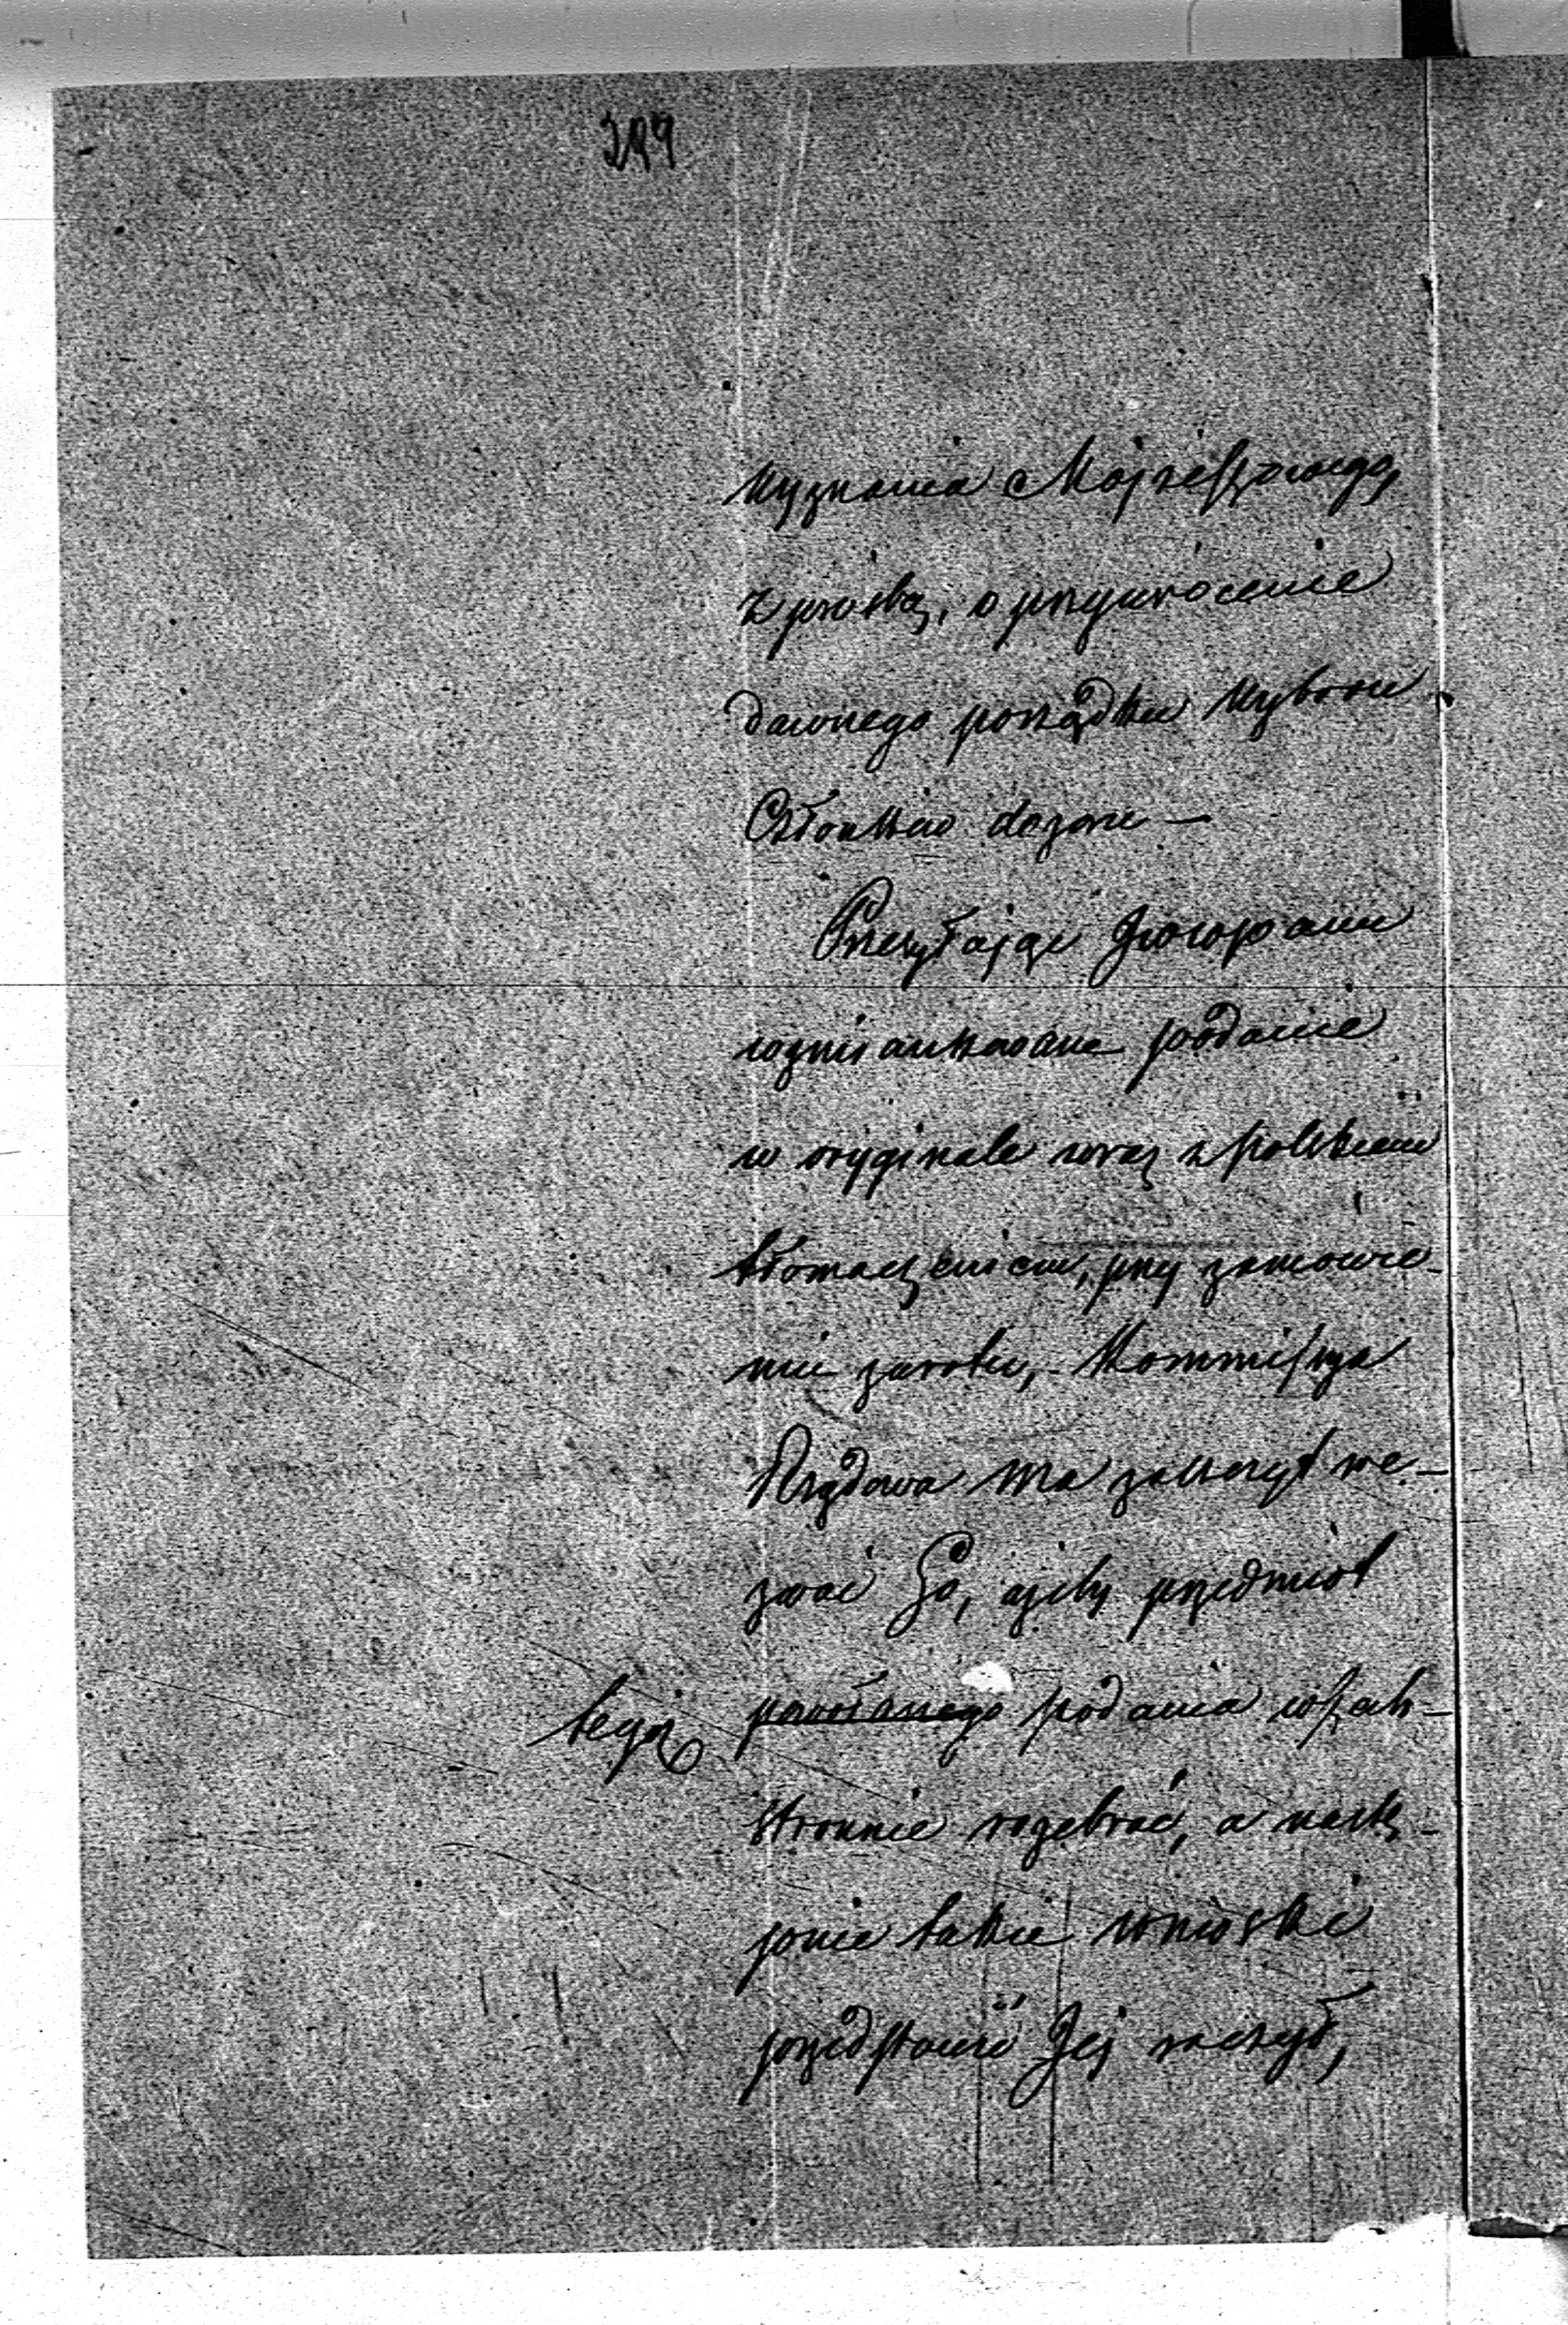 299
Wyznania Mojżeszowego,
z prośbą, o przywrócenie
dawnego porządku wyboru
Członków dozoru —
Przesyłając JWW Panu
wzmiankowane podanie
w oryginale wraz z polskiem
tłomaczeniem, przy zamówie-
niu zwrotu, Kommissya
Rządowa ma zaszczyt we-
zwać Go, ażeby przedmiot
tego powołanego podania wszech-
stronnie rozebrać, a nastę-
pnie takie wnioski
przedstawić Jej raczył,